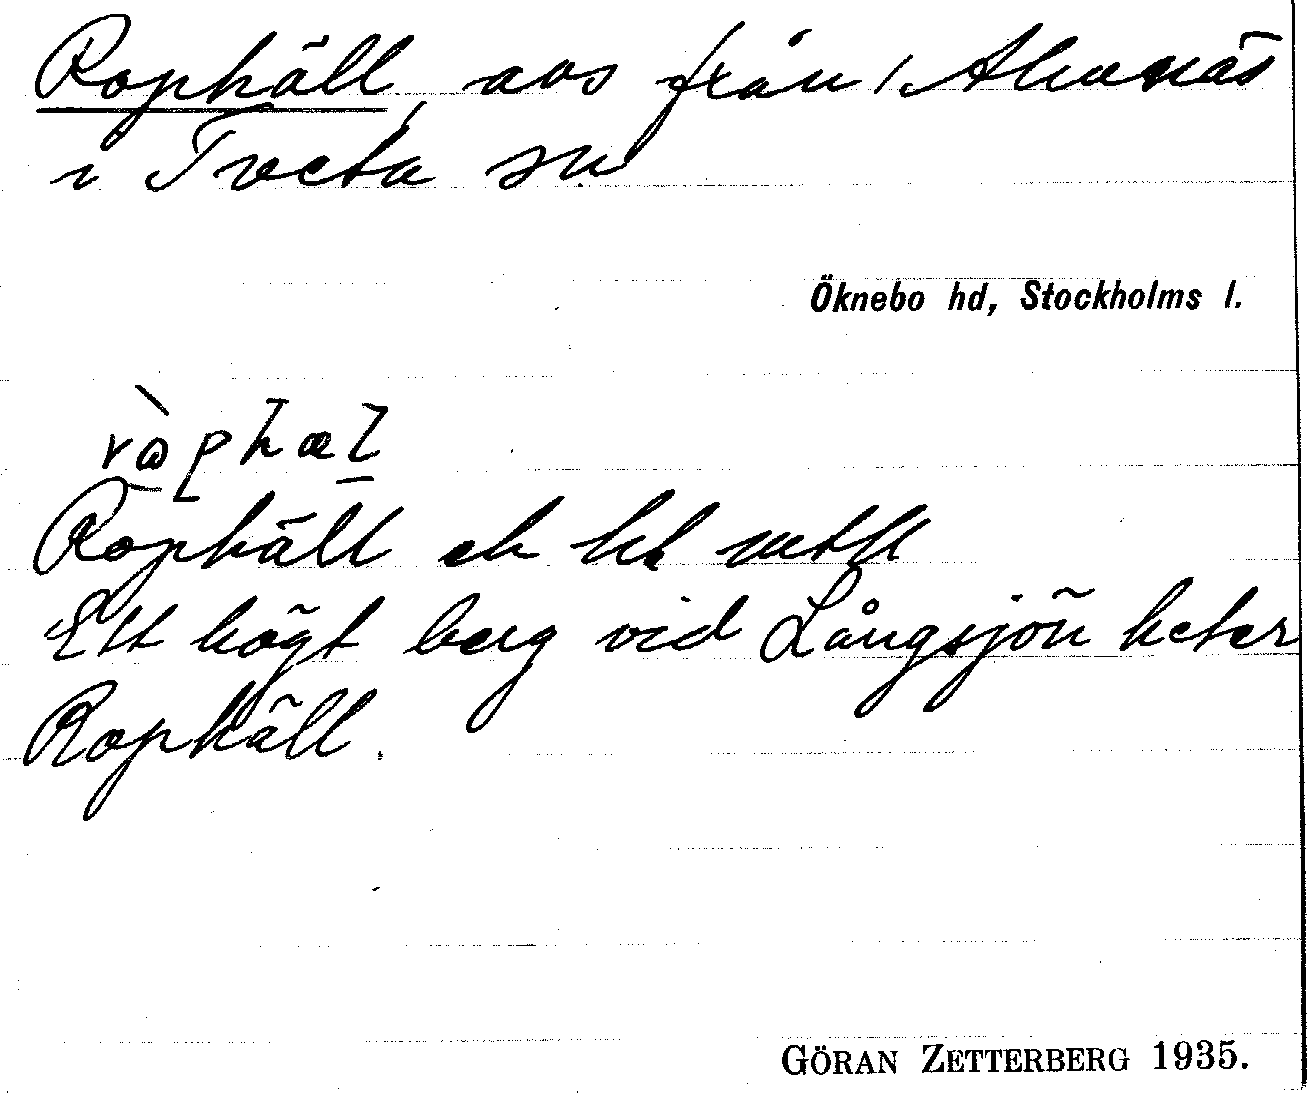 Rophäll, avs från Almnäs
i Tveta sn
Öknebo hd, Stockholms l.
Rophäll
Ett högt berg vid Långsjön heter
Rophäll.
GÖRAN ZETTERBERG 1935.